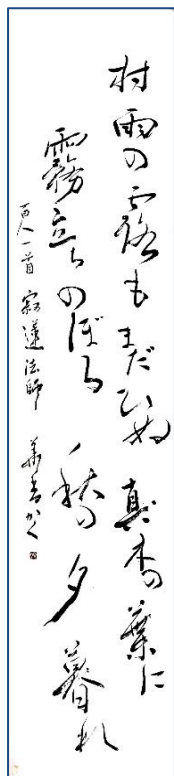 村雨の露もまだひぬ 真木の葉に
霧立ちのぼる 秋の夕暮れ
百人一首 寂蓮法師 かく